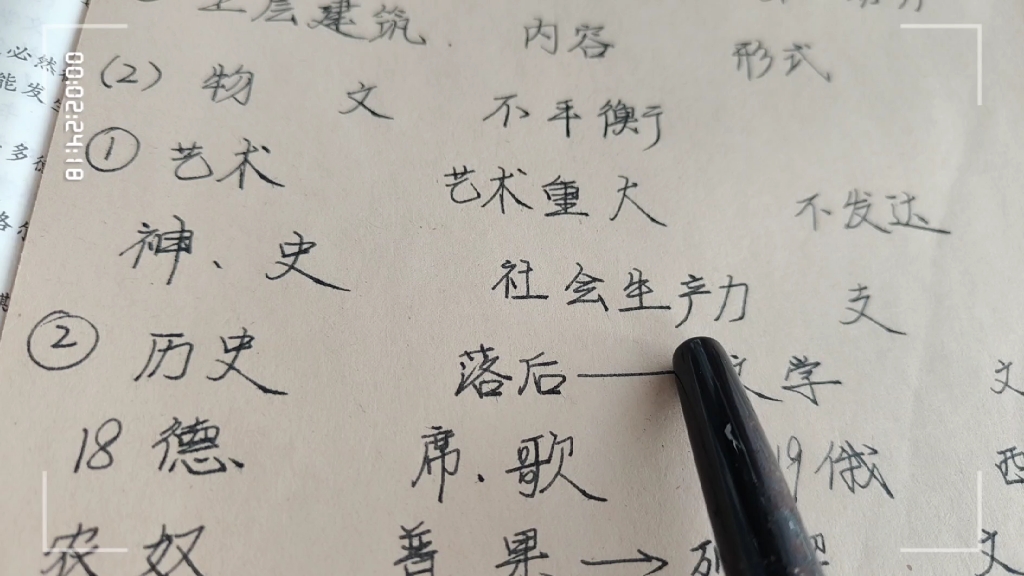 上层建筑. 内容 形式
(2) 物 文 不平衡
① 艺术 艺术重大 不发达
神、史 社会生产力 支
② 历史 落后——文学
18 德 席.歌 19 俄 西
农奴 普 果→
00:02:24:18
必然
能发
多